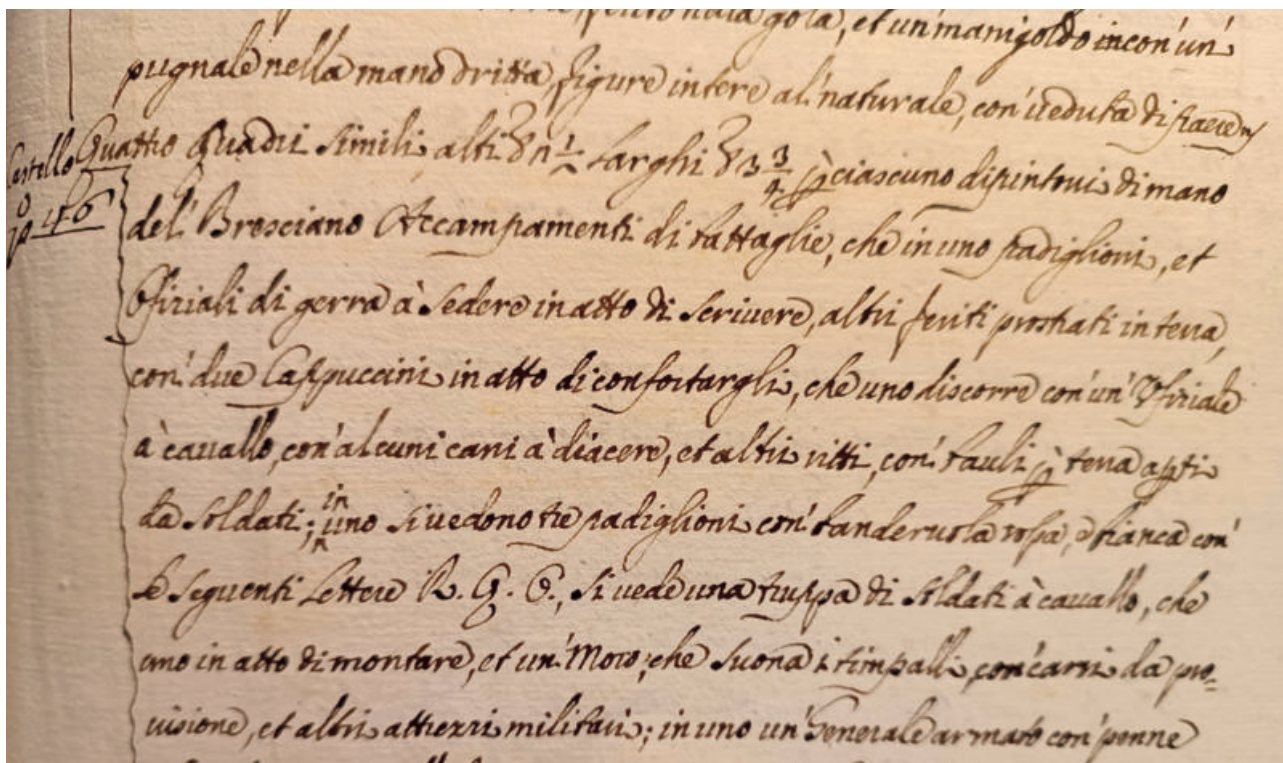 ferito nela gola, et un' manigoldo in con' un'
pugnale nella mano dritta, figure intere al' naturale, con' ueduta di
Castello Quattro Quadri simili alti larghi 3 3/4 ciascuno dipintoui di mano
del' Bresciano Accampamenti di battaglie, che in uno padiglioni, et
Ofiziali di gerra à sedere in atto di scriuere, altri feriti prostrati in terra,
con' due Cappuccini in atto di confortargli, che uno discorre con' un' Ofiziale
à cauallo, con' alcuni cani à diacere, et altri ritti, con' bauli p terra apti
da soldati; in uno si uedono tre padiglioni con' banderuola rossa, e bianca con'
le seguenti Lettere R. G. O., si uede una truppa di soldati à cauallo, che
uno in atto di montare, et un' Moro, che suona i timpalli, con' carri da pro=
uisione, et altri attrezzi militari; in uno un' Generale armato con' penne